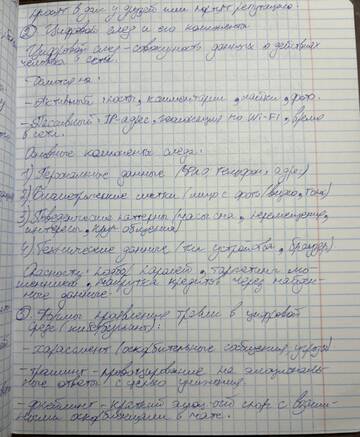 просят в долг у друзей или портят репутацию.
② Цифровой след и его компоненты
Цифровой след - совокупность данных о действиях
человека в сети.
Делится на:
- Активный: посты, комментарии, лайки, фото.
- Пассивный: IP-адрес, Wi-Fi, время
в сети.
Основные компоненты следа:
1) Персональные данные (ФИО, телефон, адрес)
2) Биометрические метки (лицо с фото/видео, голос)
3) Поведенческие паттерны (часы сна, перемещение,
интересы, круг общения)
4) Технические данные (тип устройства, браузер)
Опасность: карателей, таргетинг мо-
шенников, накрутка кредитов через найден-
ные данные.
③ Формы проявление травли в цифровой
среде (кибербуллинг):
- харассмент (оскорбительные сообщения, угрозы)
- троллинг - провоцирование на эмоциональ-
ные ответы с целью унижения.
- флейминг - краткий спор с взаим-
ными оскорблениями в чате.